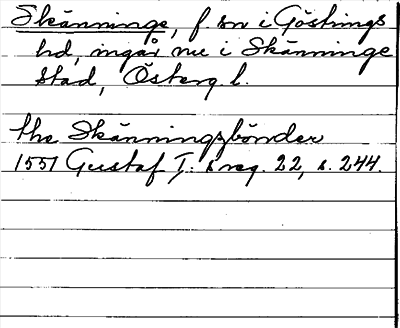 Skänninge, f. sn i Göstrings
hd, ingår nu i Skänninge
stad, Österg. l.
the Skänningzbönder
1551 Gustaf I:s reg. 22, s. 244.